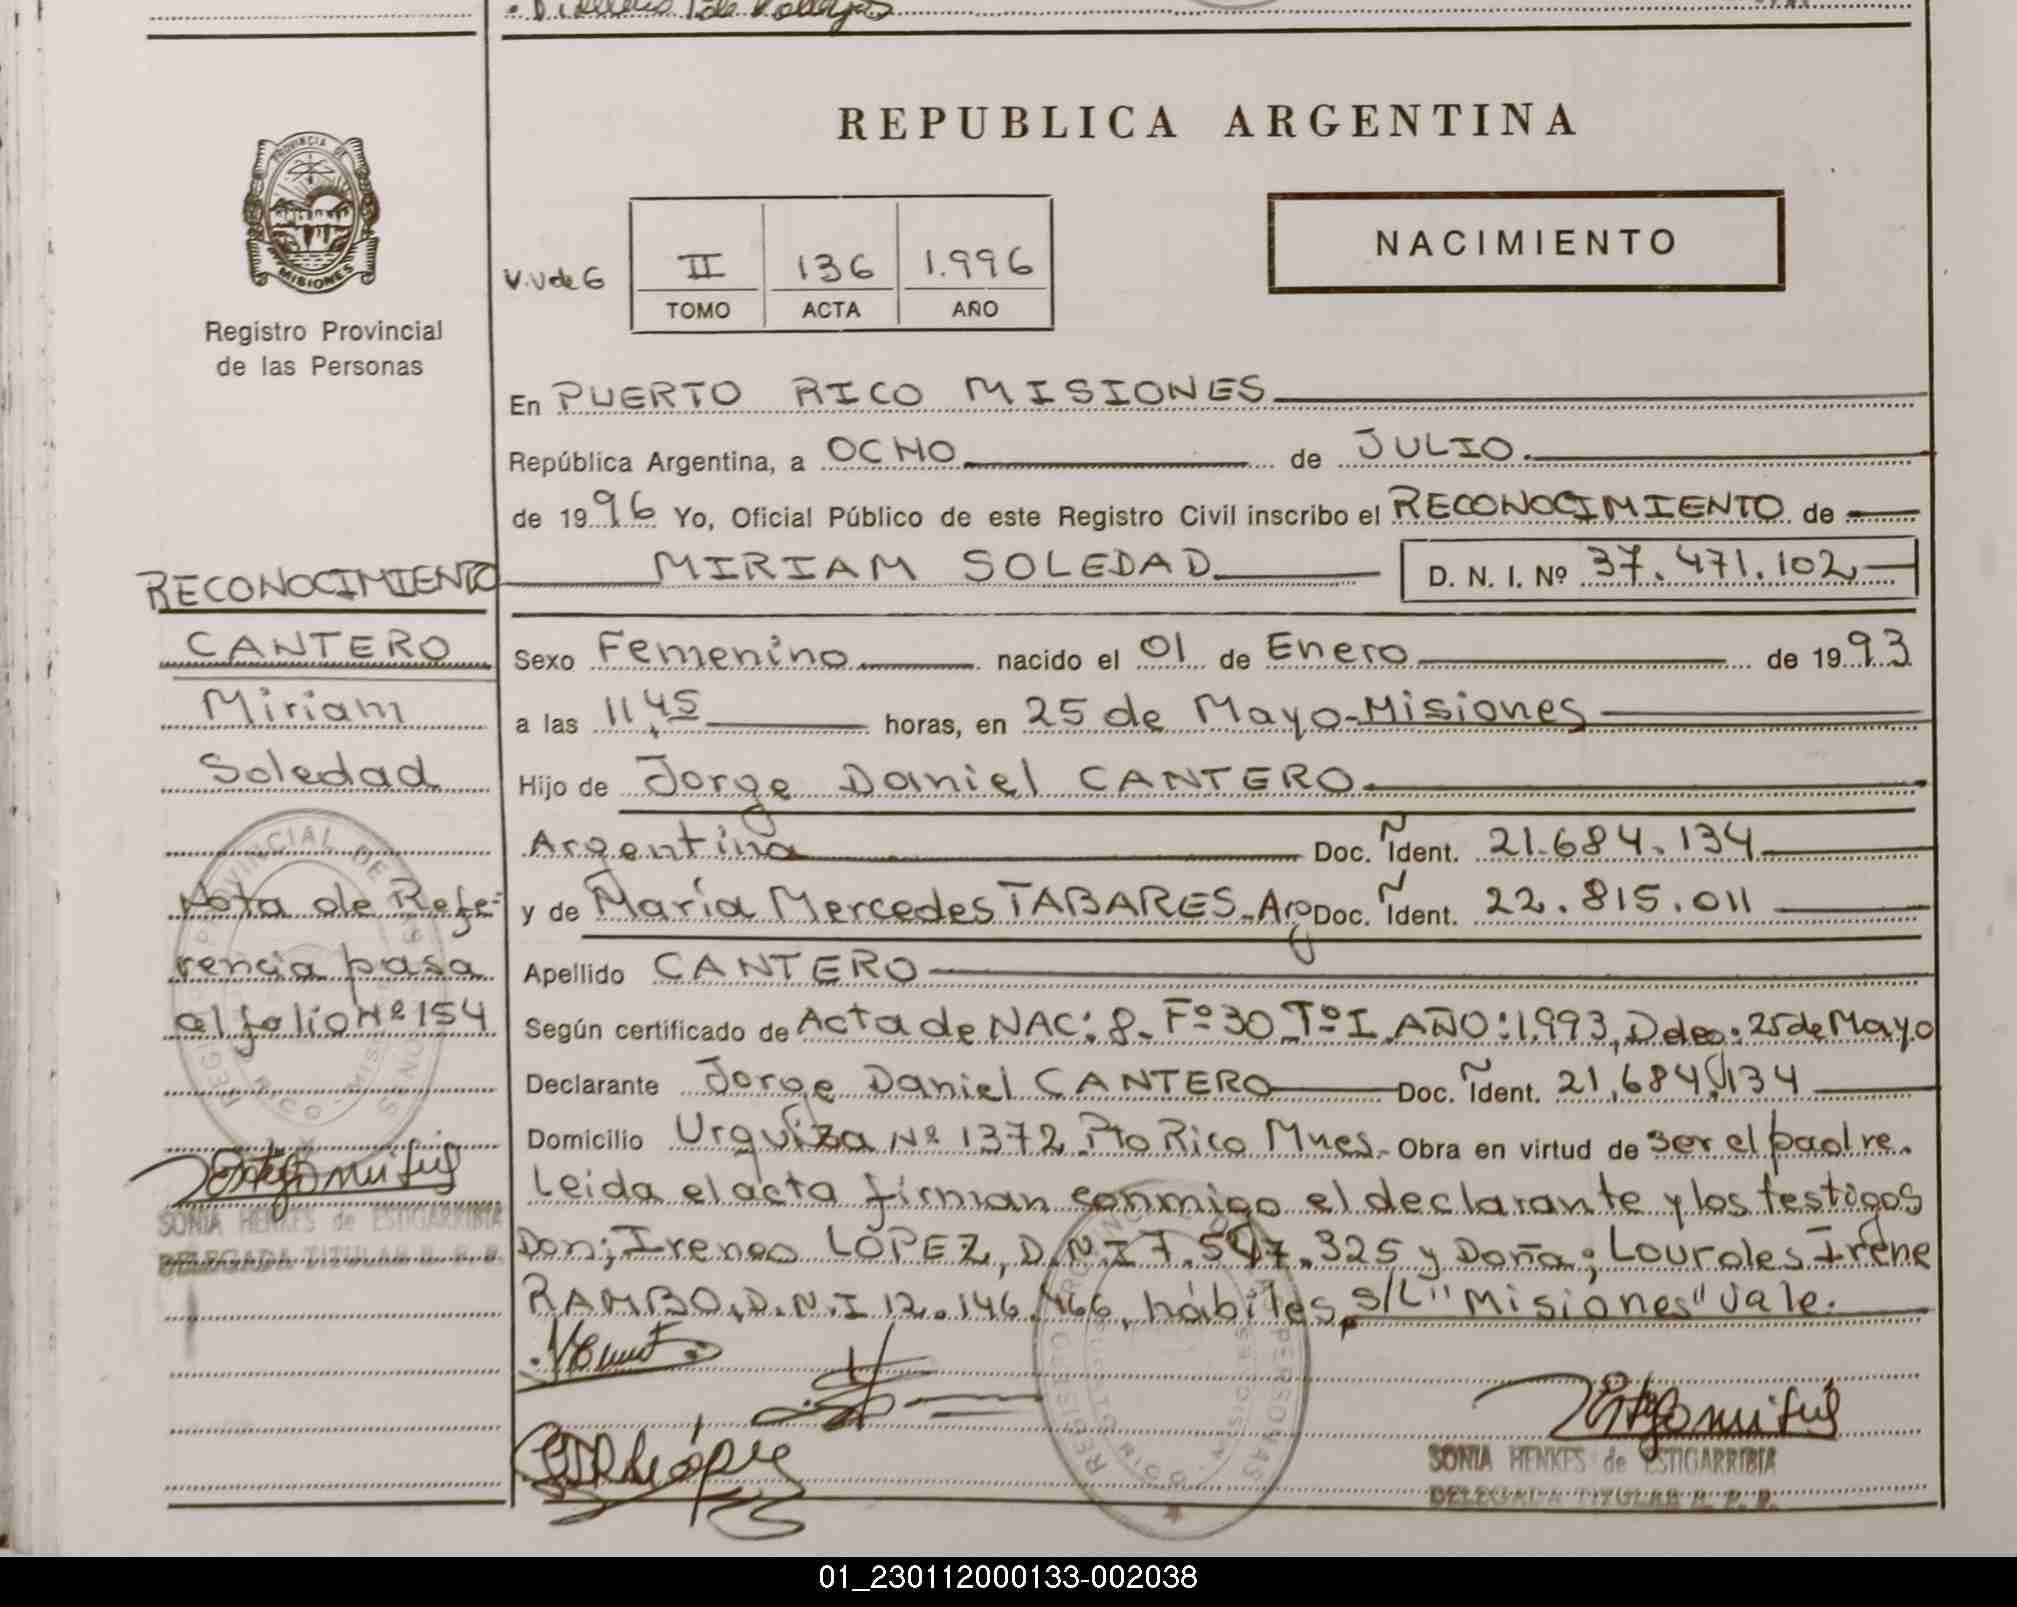 REPUBLICA ARGENTINA
PROVINCIA DE
MISIONES
Registro Provincial
de las Personas
NACIMIENTO
V.V de G
II 136 1.996
TOMO ACTA AÑO
En PUERTO RICO MISIONES
República Argentina, a OCHO de JULIO.
de 1996 Yo, Oficial Público de este Registro Civil inscribo el RECONOCIMIENTO de
MIRIAM SOLEDAD D. N. I. Nº 37.471.102
Sexo Femenino nacido el 01 de Enero de 1993
a las 11,45 horas, en 25 de Mayo-Misiones
Hijo de Jorge Daniel CANTERO
Argentina Doc. Ident. 21.684.134
y de María Mercedes TABARES-Arg Doc. Ident. 22.815.011
Apellido CANTERO
Según certificado de Acta de NAC: 8- Fº30 Tº I AÑO: 1.993, D deo: 25 de Mayo
Declarante Jorge Daniel CANTERO Doc. Ident. 21.684.134
Domicilio Urquiza Nº 1372 Pto Rico Mnes- Obra en virtud de ser el padre.
Leida el acta firman conmigo el declarante y los testigos
Don; Ireneo LÓPEZ, D.N.I 7.597.325 y Doña; Lourdes Irene
RAMBO, D.N.I 12.146.466, hábiles, s/L "Misiones" vale.
RECONOCIMIENTO
CANTERO
Miriam
Soledad
Nota de Refe=
rencia pasa
al folio Nº 154
SONIA HENKES de ESTIGARRIBIA
DELEGADA TITULAR R. P. P.
SONIA HENKES de ESTIGARRIBIA
DELEGADA TITULAR R. P. P.
01_230112000133-002038